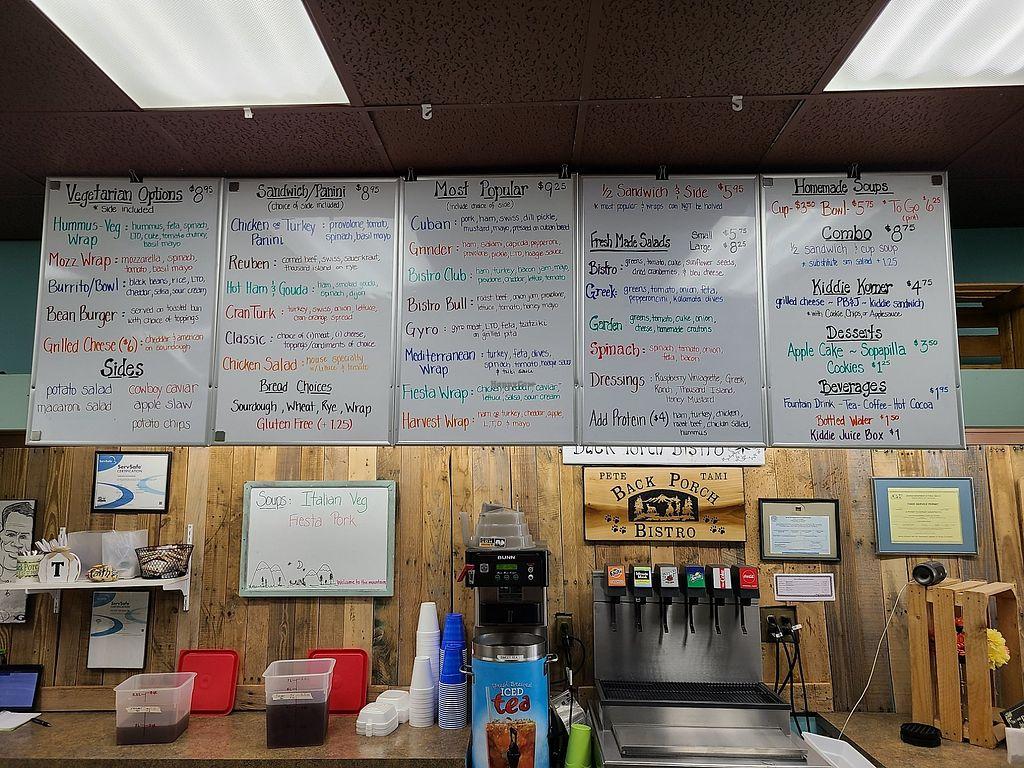 Vegetarian Options $8.95
* side included
Hummus-Veg Wrap : hummus, feta, spinach,
LTO, cuke, tomato chutney,
basil mayo
Mozz Wrap : mozzarella, spinach,
tomato, basil mayo
Burrito/Bowl : black beans, rice, LTO,
cheddar, salsa, sour cream
Bean Burger : served on toasted bun
with choice of toppings
Grilled Cheese ($6) : cheddar & american
on sourdough
Sides
potato salad cowboy caviar
macaroni salad apple slaw
potato chips
Sandwich/Panini $8.95
(choice of side included)
Chicken or Turkey Panini : provolone, tomato,
spinach, basil mayo
Reuben : corned beef, swiss, sauerkraut,
thousand island on rye
Hot Ham & Gouda : ham, smoked gouda,
spinach, dijon
CranTurk : turkey, swiss, onion, lettuce,
cran-orange spread
Classic : choice of (1) meat, (1) cheese,
toppings/condiments of choice
Chicken Salad : house specialty
w/lettuce & tomato
Bread Choices
Sourdough, Wheat, Rye, Wrap
Gluten Free (+ 1.25)
Most Popular $9.25
(include choice of side)
Cuban : pork, ham, swiss, dill pickle,
mustard, mayo, pressed on cuban bread
Grinder : ham, salami, capicola, pepperoni,
provolone, pickle, LTO, hoagie sauce
Bistro Club : ham, turkey, bacon, jam, mayo,
provolone, cheddar, lettuce, tomato
Bistro Bull : roast beef, onion jam, provolone,
lettuce, tomato, honey mayo
Gyro : gyro meat, LTO, feta, tzatziki
on grilled pita
Mediterranean Wrap : turkey, feta, olives,
spinach, tomato, hoagie sauce
& tziki sauce
Fiesta Wrap : chicken, cheddar, caviar,
lettuce, salsa, sour cream
Harvest Wrap : ham or turkey, cheddar, apple,
L,T,O & mayo
1/2 Sandwich & Side $5.95
* most popular & wraps can NOT be halved
Fresh Made Salads Small $5.75
Large $8.25
Bistro : greens, tomato, cuke, sunflower seeds,
dried cranberries & bleu cheese
Greek : greens, tomato, onion, feta,
pepperoncini, kalamata olives
Garden : greens, tomato, cuke, onion,
cheese, homemade croutons
Spinach : spinach, tomato, onion,
feta, bacon
Dressings : Raspberry Vinaigrette, Greek,
Ranch, Thousand Island,
Honey Mustard
Add Protein ($4) ham, turkey, chicken,
roast beef, chicken salad,
hummus
Homemade Soups
Cup - $3.50 Bowl - $5.75 * To Go $6.25
(pint)
Combo $8.75
1/2 sandwich & cup soup
* substitute sm salad + 1.25
Kiddie Korner $4.75
grilled cheese ~ PB&J ~ kiddie sandwich
* with Cookie, Chips, or Applesauce
Desserts
Apple Cake ~ Sopapilla $3.50
Cookies $1.25
Beverages
Fountain Drink - Tea - Coffee - Hot Cocoa $1.95
Bottled Water $1.50
Kiddie Juice Box $1
BACK PORCH BISTRO
ServSafe
CERTIFICATION
Soups: Italian Veg
Fiesta Pork
Welcome to the mountain
PETE TAMI
BACK PORCH
BISTRO
BUNN
T
ServSafe
ICED
tea